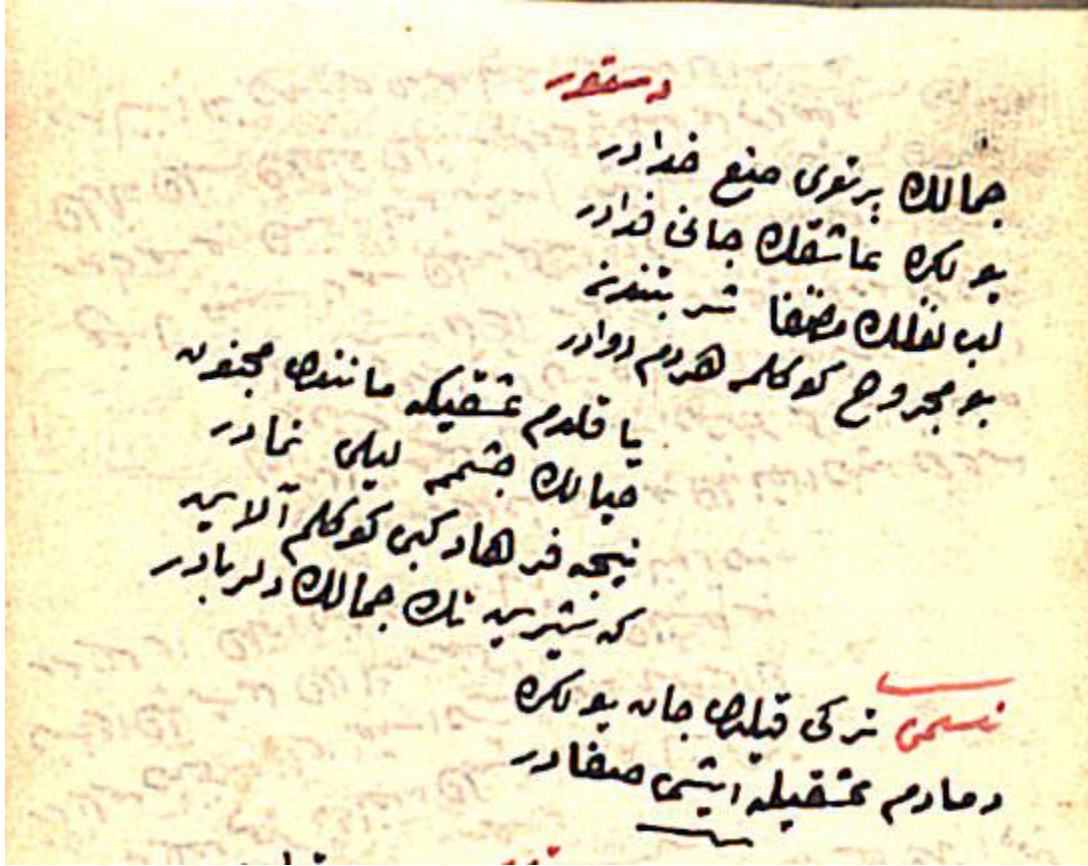 دستور
جمالك پرتوی صنع خدادر
يولكه عاشقك جانی فدادر
لب لعلك مصفا شربتندن
بو مجروح كوكلمه هردم دوادر
يا قلدم عشقيكه مانند مجنون
خيالك چشممه ليلی نمادر
نيجه فرهاد كبی كوكلم آلاين
كه شيرين تك جمالك دلربادر
نسيمی تركی قيلدی جان يولكه
دمادم عشقيله ايشی صفادر